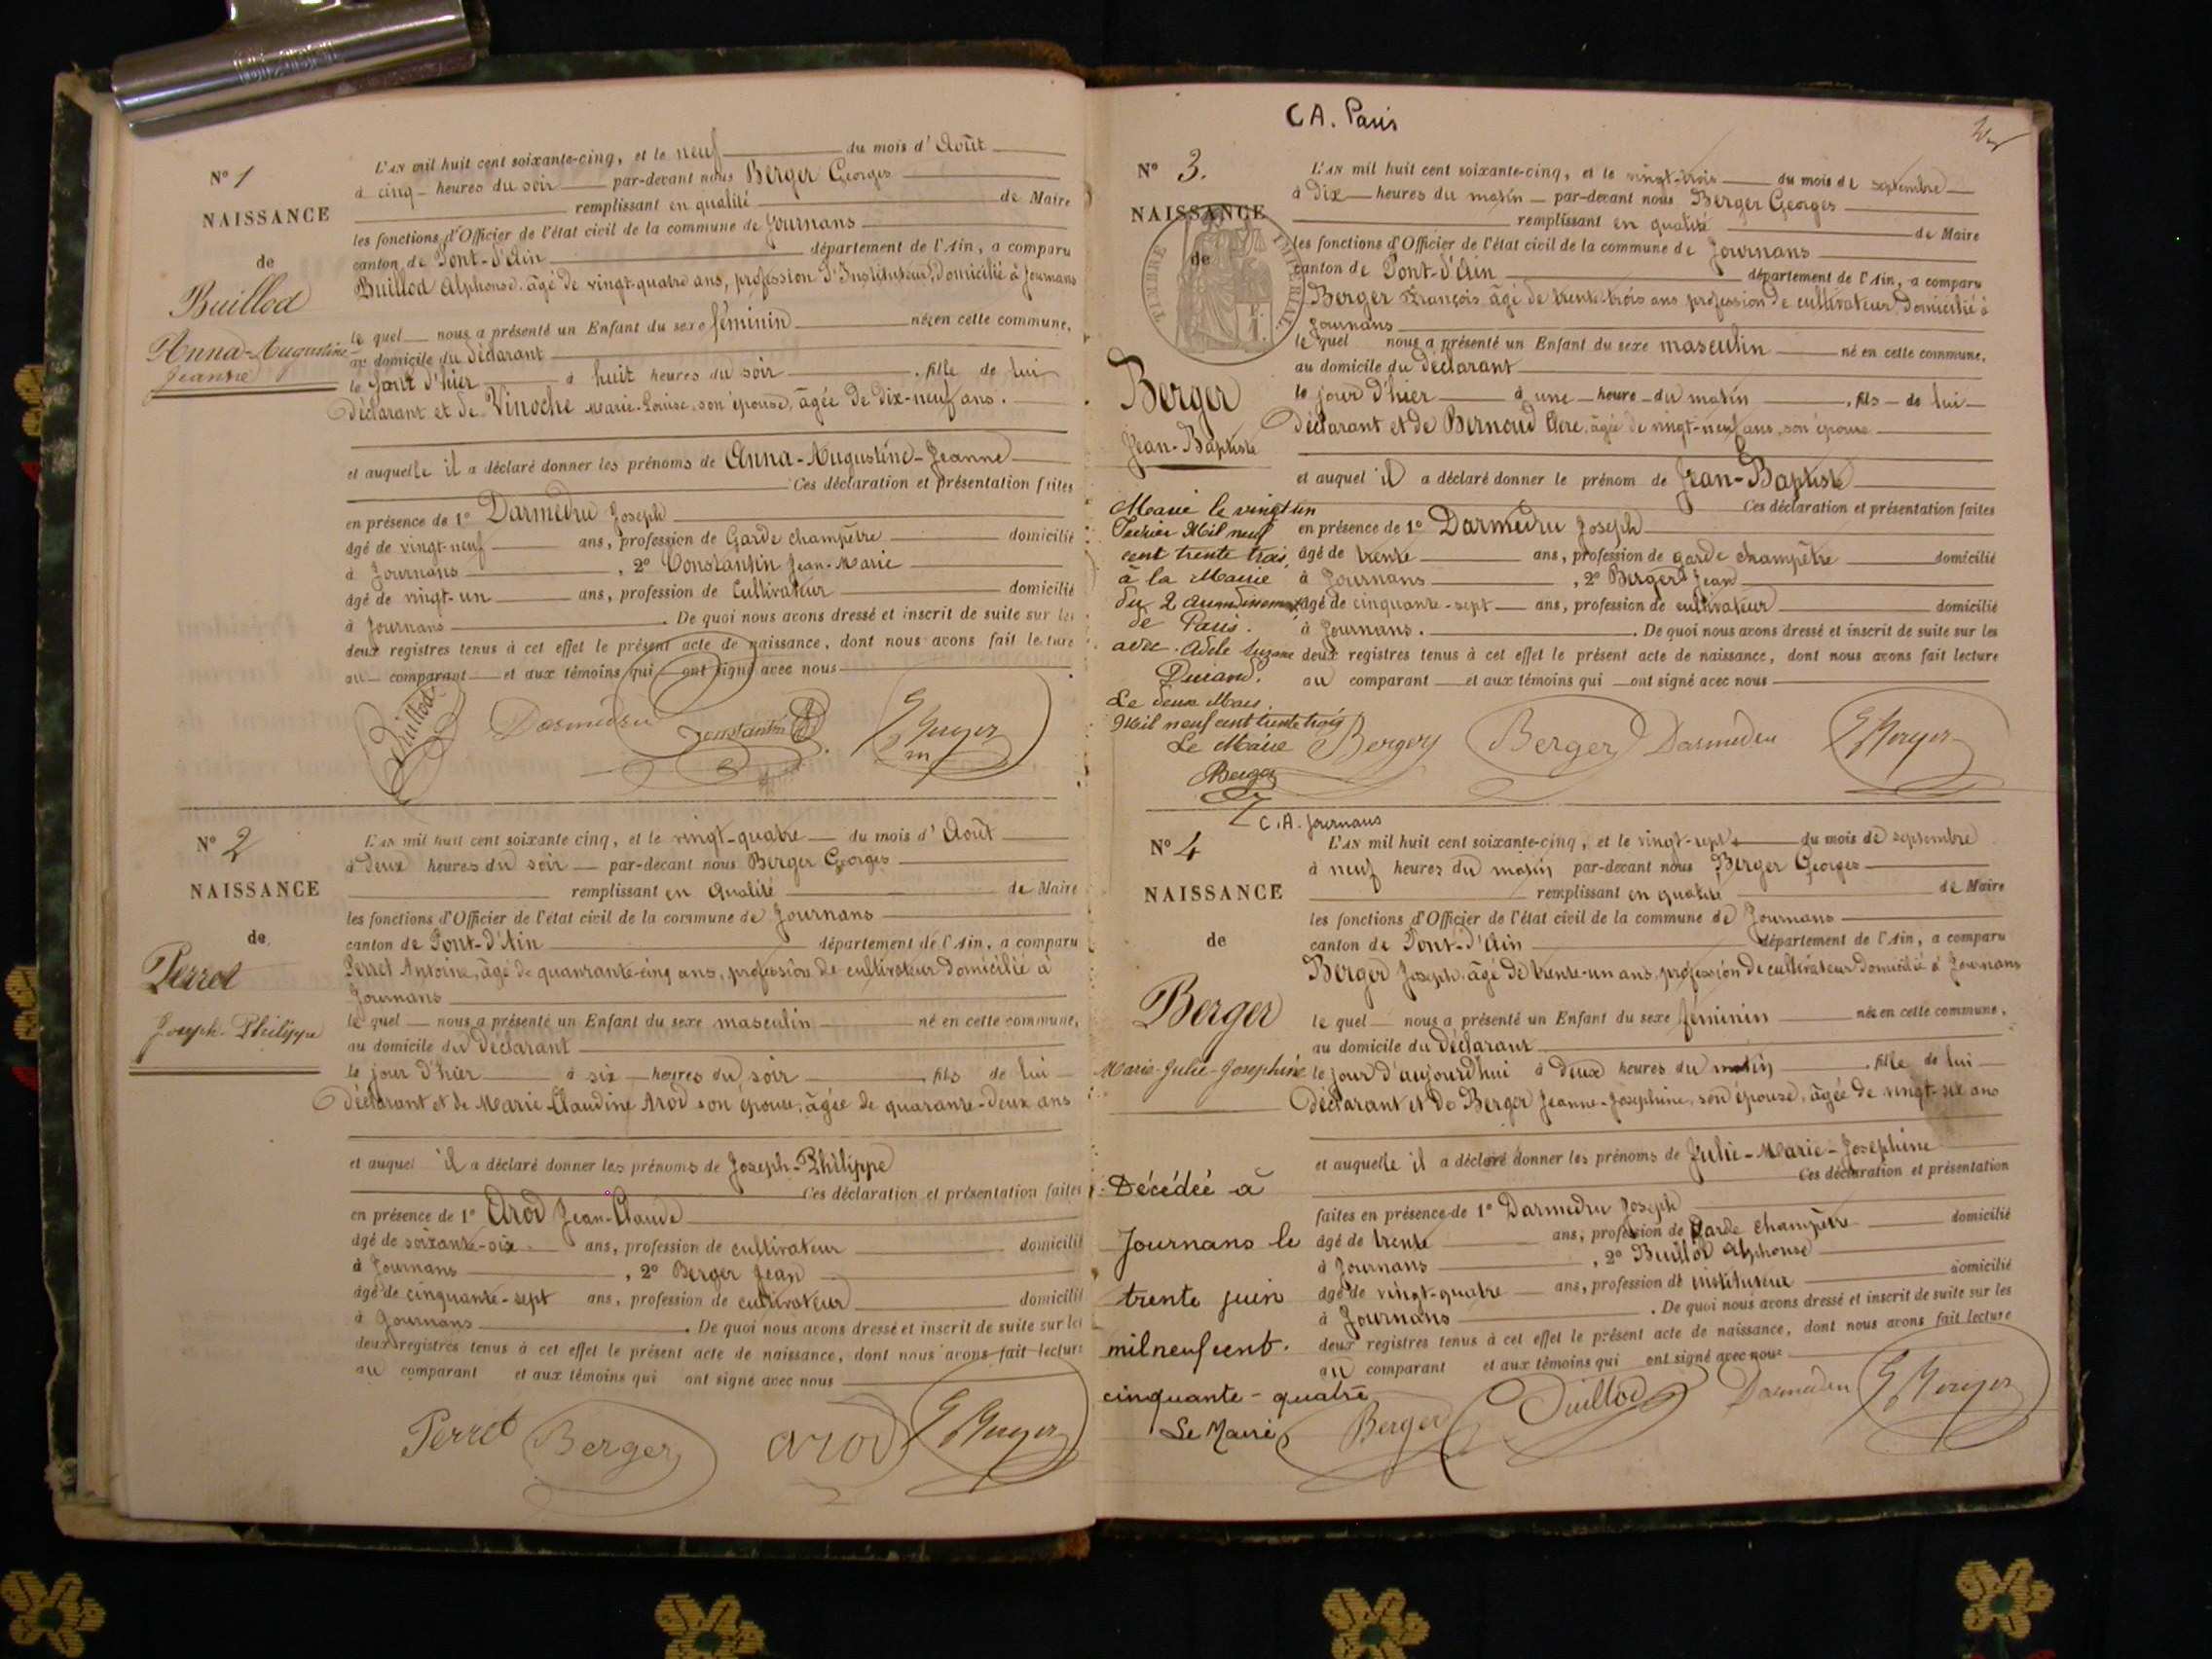 N° 1
NAISSANCE
de
Buillod
Anna-Augustine
Jeanne
L'AN mil huit cent soixante-cinq, et le neuf du mois d'Août
à cinq heures du soir par-devant nous Berger Georges
remplissant en qualité de Maire
les fonctions d'Officier de l'état civil de la commune de Journans
canton de Pont-d'Ain département de l'Ain, a comparu
Buillod Alphonse, âgé de vingt-quatre ans, profession d'Instituteur, domicilié à Journans
le quel nous a présenté un Enfant du sexe féminin née en cette commune,
au domicile du déclarant
le jour d'hier à huit heures du soir, fille de lui
déclarant et de Vinoche Marie-Louise, son épouse, âgée de dix-neuf ans.
et auquelle il a déclaré donner les prénoms de Anna-Augustine-Jeanne
Ces déclaration et présentation faites
en présence de 1° Darmedru Joseph
âgé de vingt-neuf ans, profession de Garde champêtre domicilié
à Journans, 2° Constantin Jean-Marie
âgé de vingt-un ans, profession de Cultivateur domicilié
à Journans. De quoi nous avons dressé et inscrit de suite sur les
deux registres tenus à cet effet le présent acte de naissance, dont nous avons fait lecture
au comparant et aux témoins qui ont signé avec nous
Buillod Darmedru Constantin G Berger
m
N° 2
NAISSANCE
de
Perret
Joseph-Philippe
L'AN mil huit cent soixante cinq, et le vingt-quatre du mois d'Août
à deux heures du soir par-devant nous Berger Georges
remplissant en qualité de Maire
les fonctions d'Officier de l'état civil de la commune de Journans
canton de Pont-d'Ain département de l'Ain, a comparu
Perret Antoine, âgé de quanrante-cinq ans, profession de cultivateur domicilié à
Journans
le quel nous a présenté un Enfant du sexe masculin né en cette commune,
au domicile du déclarant
le jour d'hier à six heures du soir, fils de lui
déclarant et de Marie-Claudine Arod son épouse, âgée de quarante-deux ans
et auquel il a déclaré donner les prénoms de Joseph-Philippe
Ces déclaration et présentation faites
en présence de 1° Arod Jean-Claude
âgé de soixante-six ans, profession de cultivateur domicilié
à Journans, 2° Berger Jean
âgé de cinquante-sept ans, profession de cultivateur domicilié
à Journans. De quoi nous avons dressé et inscrit de suite sur les
deux registres tenus à cet effet le présent acte de naissance, dont nous avons fait lecture
au comparant et aux témoins qui ont signé avec nous
Perret Berger arod G Berger
C A. Paris
N° 3.
NAISSANCE
de
TIMBRE IMPERIAL
Berger
Jean-Baptiste
L'AN mil huit cent soixante-cinq, et le vingt-trois du mois de septembre
à dix heures du matin par-devant nous Berger Georges
remplissant en qualité de Maire
les fonctions d'Officier de l'état civil de la commune de Journans
canton de Pont-d'Ain département de l'Ain, a comparu
Berger François âgé de trente-trois ans profession de cultivateur, domicilié à
Journans
le quel nous a présenté un Enfant du sexe masculin né en cette commune,
au domicile du déclarant
le jour d'hier à une heure du matin, fils de lui
déclarant et de Bernoud âgée de vingt-neuf ans, son épouse
et auquel il a déclaré donner le prénom de Jean-Baptiste
Ces déclaration et présentation faites
en présence de 1° Darmedru Joseph
âgé de trente ans, profession de garde champêtre domicilié
à Journans, 2° Berger Jean
âgé de cinquante-sept ans, profession de cultivateur domicilié
à Journans. De quoi nous avons dressé et inscrit de suite sur les
deux registres tenus à cet effet le présent acte de naissance, dont nous avons fait lecture
au comparant et aux témoins qui ont signé avec nous
Marié le vingt un
Mil neuf
cent trente trois,
à la Mairie
du 2 arrondissement
de Paris.
avec Adèle Suzanne
Durand.
Le deux Mars
Mil neuf cent trente trois
Le Maire
Berger
Berger Berger Darmedru G Berger
C.A. Journans
N° 4
NAISSANCE
de
Berger
Marie-Julie-Joséphine
L'AN mil huit cent soixante-cinq, et le vingt-sept du mois de septembre
à neuf heures du matin par-devant nous Berger Georges
remplissant en qualité de Maire
les fonctions d'Officier de l'état civil de la commune de Journans
canton de Pont-d'Ain département de l'Ain, a comparu
Berger Joseph, âgé de trente-un ans, profession de cultivateur domicilié à Journans
le quel nous a présenté un Enfant du sexe féminin née en cette commune,
au domicile du déclarant
le jour d'aujourd'hui à deux heures du matin, fille de lui
déclarant et de Berger Jeanne-Joséphine, son épouse, âgée de vingt-six ans
et auquelle il a déclaré donner les prénoms de Julie-Marie-Joséphine
Ces déclaration et présentation
faites en présence de 1° Darmedru Joseph
âgé de trente ans, profession de Garde champêtre domicilié
à Journans, 2° Buillod Alphonse
âgé de vingt-quatre ans, profession de instituteur domicilié
à Journans. De quoi nous avons dressé et inscrit de suite sur les
deux registres tenus à cet effet le présent acte de naissance, dont nous avons fait lecture
au comparant et aux témoins qui ont signé avec nous
Décédée à
Journans le
trente juin
mil neuf cent.
cinquante-quatre
Le Maire
Berger Buillod Darmedru G Berger